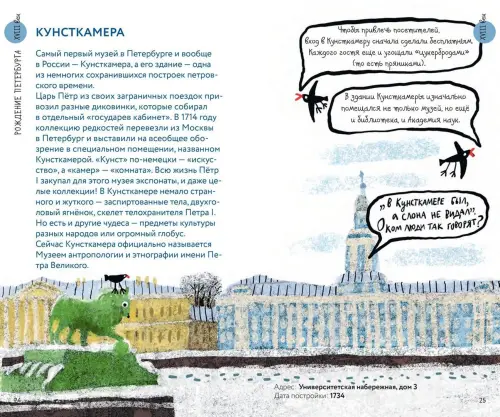 XVIII век
РОЖДЕНИЕ ПЕТЕРБУРГА
КУНСТКАМЕРА
Самый первый музей в Петербурге и вообще
в России — Кунсткамера, а его здание — одна
из немногих сохранившихся построек петров-
ского времени.
Царь Пётр из своих заграничных поездок приво-
зил разные диковинки, которые собирал
в отдельный «государев кабинет». В 1714 году
коллекцию редкостей перевезли из Москвы
в Петербург и выставили на всеобщее обо-
зрение в специальном помещении, названном
Кунсткамерой. «Кунст» по-немецки — «искус-
ство», а «камер» — «комната». Всю жизнь Пётр
I закупал для этого музея экспонаты, и даже це-
лые коллекции! В Кунсткамере немало стран-
ного и жуткого — заспиртованные тела, двухго-
ловый ягнёнок, скелет телохранителя Петра I.
Но есть и другие чудеса — предметы культуры
разных народов или огромный глобус.
Сейчас Кунсткамера официально называется
Музеем антропологии и этнографии имени Пе-
тра Великого.
Чтобы привлечь посетителей,
вход в Кунсткамеру сначала сделали бесплатным.
Каждого гостя ещё и угощали «цукербродами»
(то есть пряниками).
XVIII век
В здании Кунсткамеры изначально
помещался не только музей, но ещё
и библиотека, и Академия наук.
„В Кунсткамере был,
а слона не видал”.
О ком люди так говорят?
Адрес: Университетская набережная, дом 3
Дата постройки: 1734
25